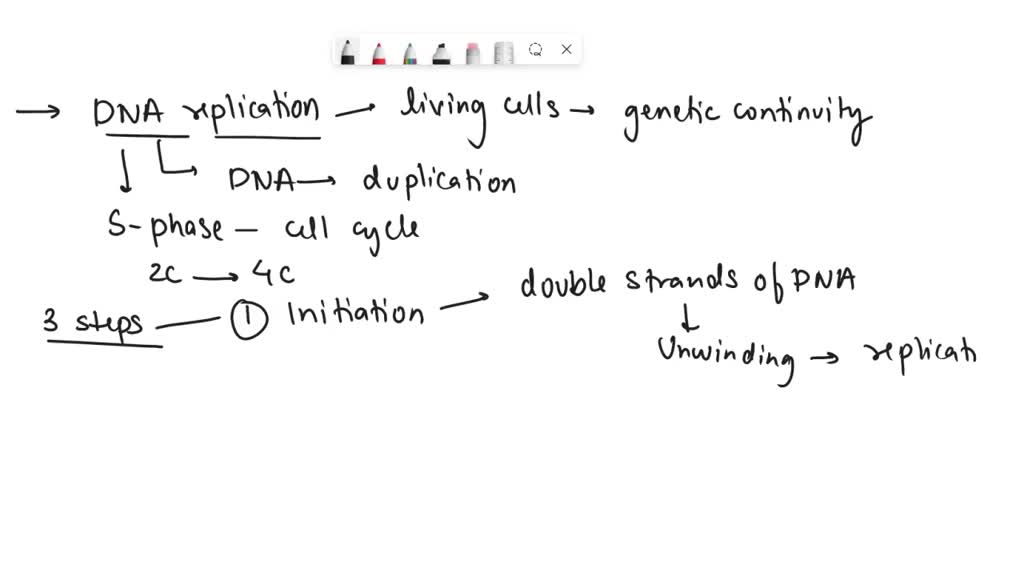 → DNA replication — living cells → genetic continuity
DNA → duplication
S-phase – cell cycle
2C → 4C
3 steps — ① Initiation → double strands of DNA
Unwinding → replicati